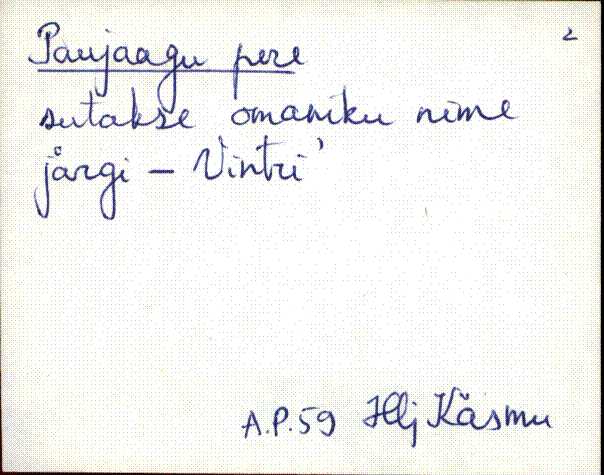 2
Paujaagu pere
sutakse omaniku nime
järgi – Vintri'
A.P.59 Hlj Käsmu